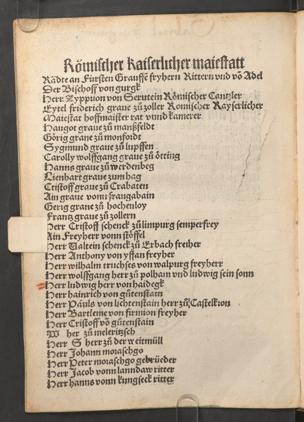 Römischer kaiserlicher maiestatt
Rädte an Fürsten Grauffē freyhern Rittern vnd vō Adel
Der Bischoff von gurgk
Herr Zyprion von Serntein Römischer Cantzler
Eytel friderich graue zů zoller Römischer Kayserlicher
Maiestat hoffmaister rat vnnd kamerer
Haugot graue zů manßfeldt
Görig graue zů monfoidt
Sygmund graue zů lupffen
Carolly wolffgang graue zů ötting
Hanns graue zů werdenbeg
Lienhart graue zum hag
Cristoff graue zů Crabaten
Ain graue vonn
Gerig graue zů hochenloy
Franz graue zů zollern
Herr Cristoff schenck zů limpurg semperfrey
Ain Freyherr vonn stöffel
Herr Valtein schenck zů Erbach freiher
Herr Anthony von yffan freyher
Herr wilhalm truchses von walpurg freyherr
Herr wolffgang herr zů polham vnd ludwig sein sonn
Herr ludwig herr von haidegk
Herr hainrich von gütenstain
Herr Pauls von liechtenstain herr zů Castelkron
Herr Bartlene von firmion freyher
Herr Cristoff vō gütenstain
her zů meleritzsch
Herr herr zů der weitmüll
Herr Johann moraschgo
Herr Peter moraschgo gebrüeder
Herr Jacob vonn lanndaw ritter
Herr hanns vonn kungseck ritter